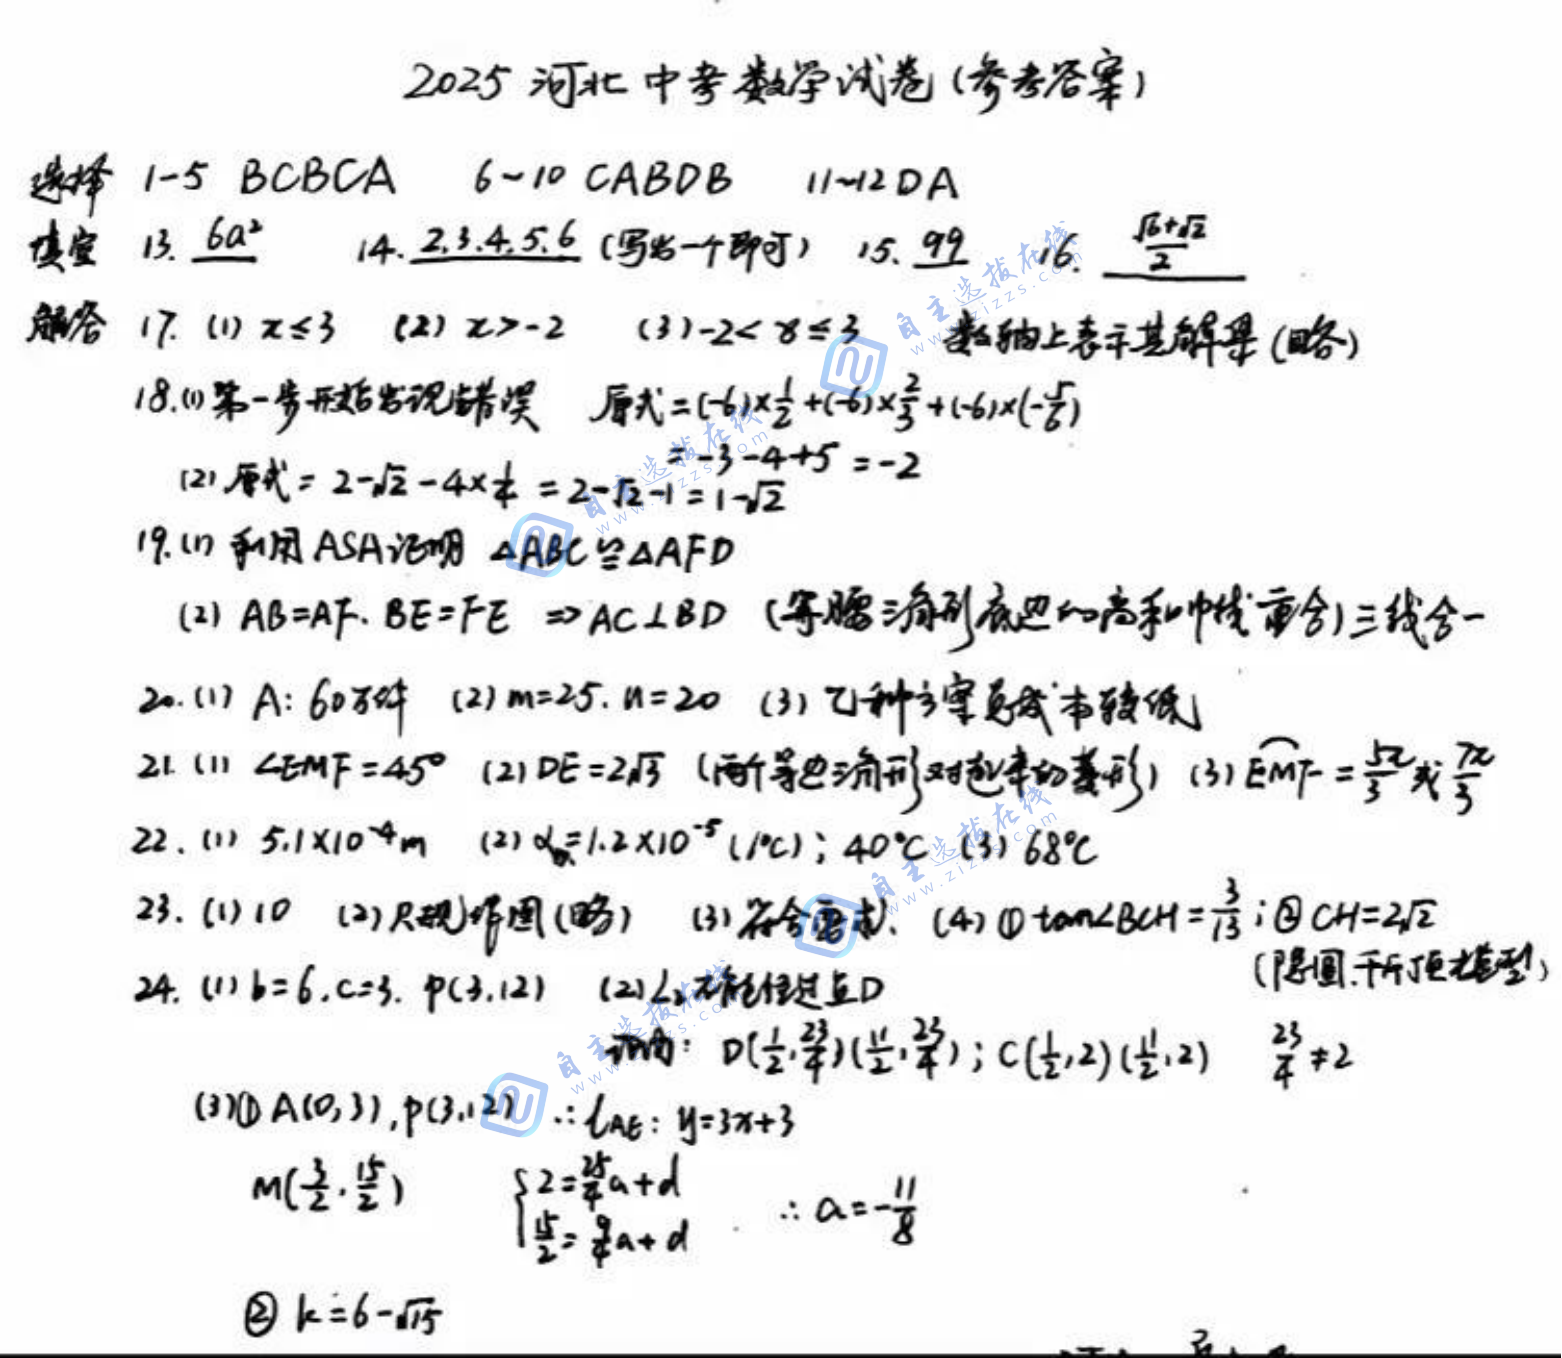 2025河北中考数学试卷(参考答案)
选择 1-5 BCBCA 6~10 CABDB 11~12 DA
填空 13. 6a² 14. 2.3.4.5.6 (写出一个即可) 15. 99 16. (√6+√2)/2
解答 17. (1) x≤3 (2) x>-2 (3) -2<x≤3 数轴上表示其解集(略)
18.(1) 第一步开始出现错误 原式=(-6)×1/2+(-6)×2/3+(-6)×(-5/6)
=-3-4+5=-2
(2) 原式=2-√2-4×1/4=2-√2-1=1-√2
19.(1) 利用ASA证明 △ABC≌△AFD
(2) AB=AF. BE=FE ⇒AC⊥BD (等腰三角形底边的高和中线重合)三线合一
20.(1) A: 60万件 (2) m=25. n=20 (3) 乙种方案总成本较低
21. (1) ∠EMF=45° (2) DE=2√3 (两个等边三角形对起来的菱形) (3) EMF=5π/3或7π/3
22. (1) 5.1×10⁻⁴m (2) α=1.2×10⁻⁵(1/°C); 40°C (3) 68°C
23. (1) 10 (2) 尺规作图(略) (3) 符合要求. (4) ① tan∠BCH=3/13; ② CH=2√2
(隐圆.千斤顶模型)
24. (1) b=6.c=3. P(3.12) (2) L₂不能经过点D
D(1/2.23/4)(11/2.23/4); C(1/2,2)(11/2,2) 23/4≠2
(3)① A(0,3), P(3.12) ∴ l_AE: y=3x+3
M(3/2.15/2) {2=25/4a+d
15/2=9/4a+d ∴ a=-11/8
② k=6-√15
自主选拔在线
www.zizzs.com
自主选拔在线
www.zizzs.com
自主选拔在线
www.zizzs.com
自主选拔在线
www.zizzs.com